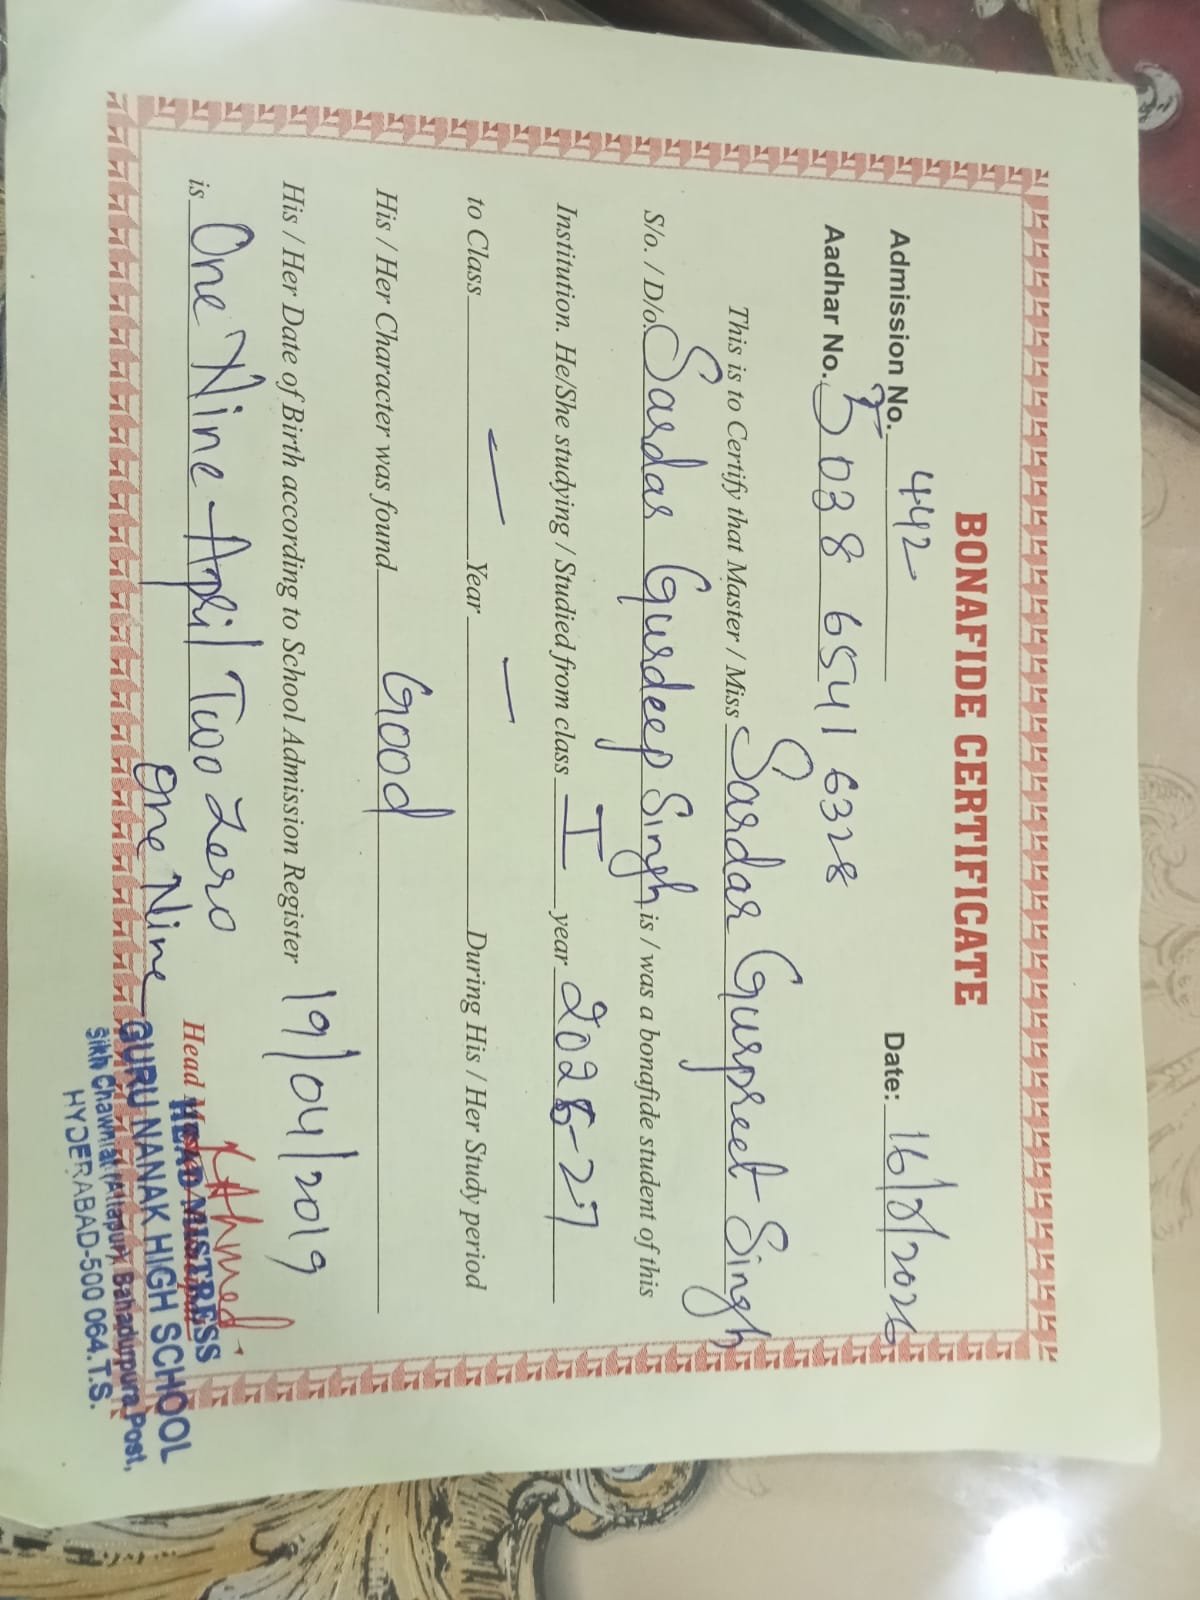 BONAFIDE CERTIFICATE
Admission No. 442 Date: 16/2/2026
Aadhar No. 5038 6541 6328
This is to Certify that Master / Miss Sardar Gurpreet Singh
S/o. / D/o. Sardar Gurdeep Singh is / was a bonafide student of this
Institution. He/She studying / Studied from class I year 2026-27
to Class — Year — During His / Her Study period
His / Her Character was found Good
His / Her Date of Birth according to School Admission Register 19/04/2019
is One Nine April Two Zero
One Nine
Head
HEAD MISTRESS
GURU NANAK HIGH SCHOOL
Sikh Chawni, (Attapur), Bahadurpura Post,
HYDERABAD-500 064.T.S.